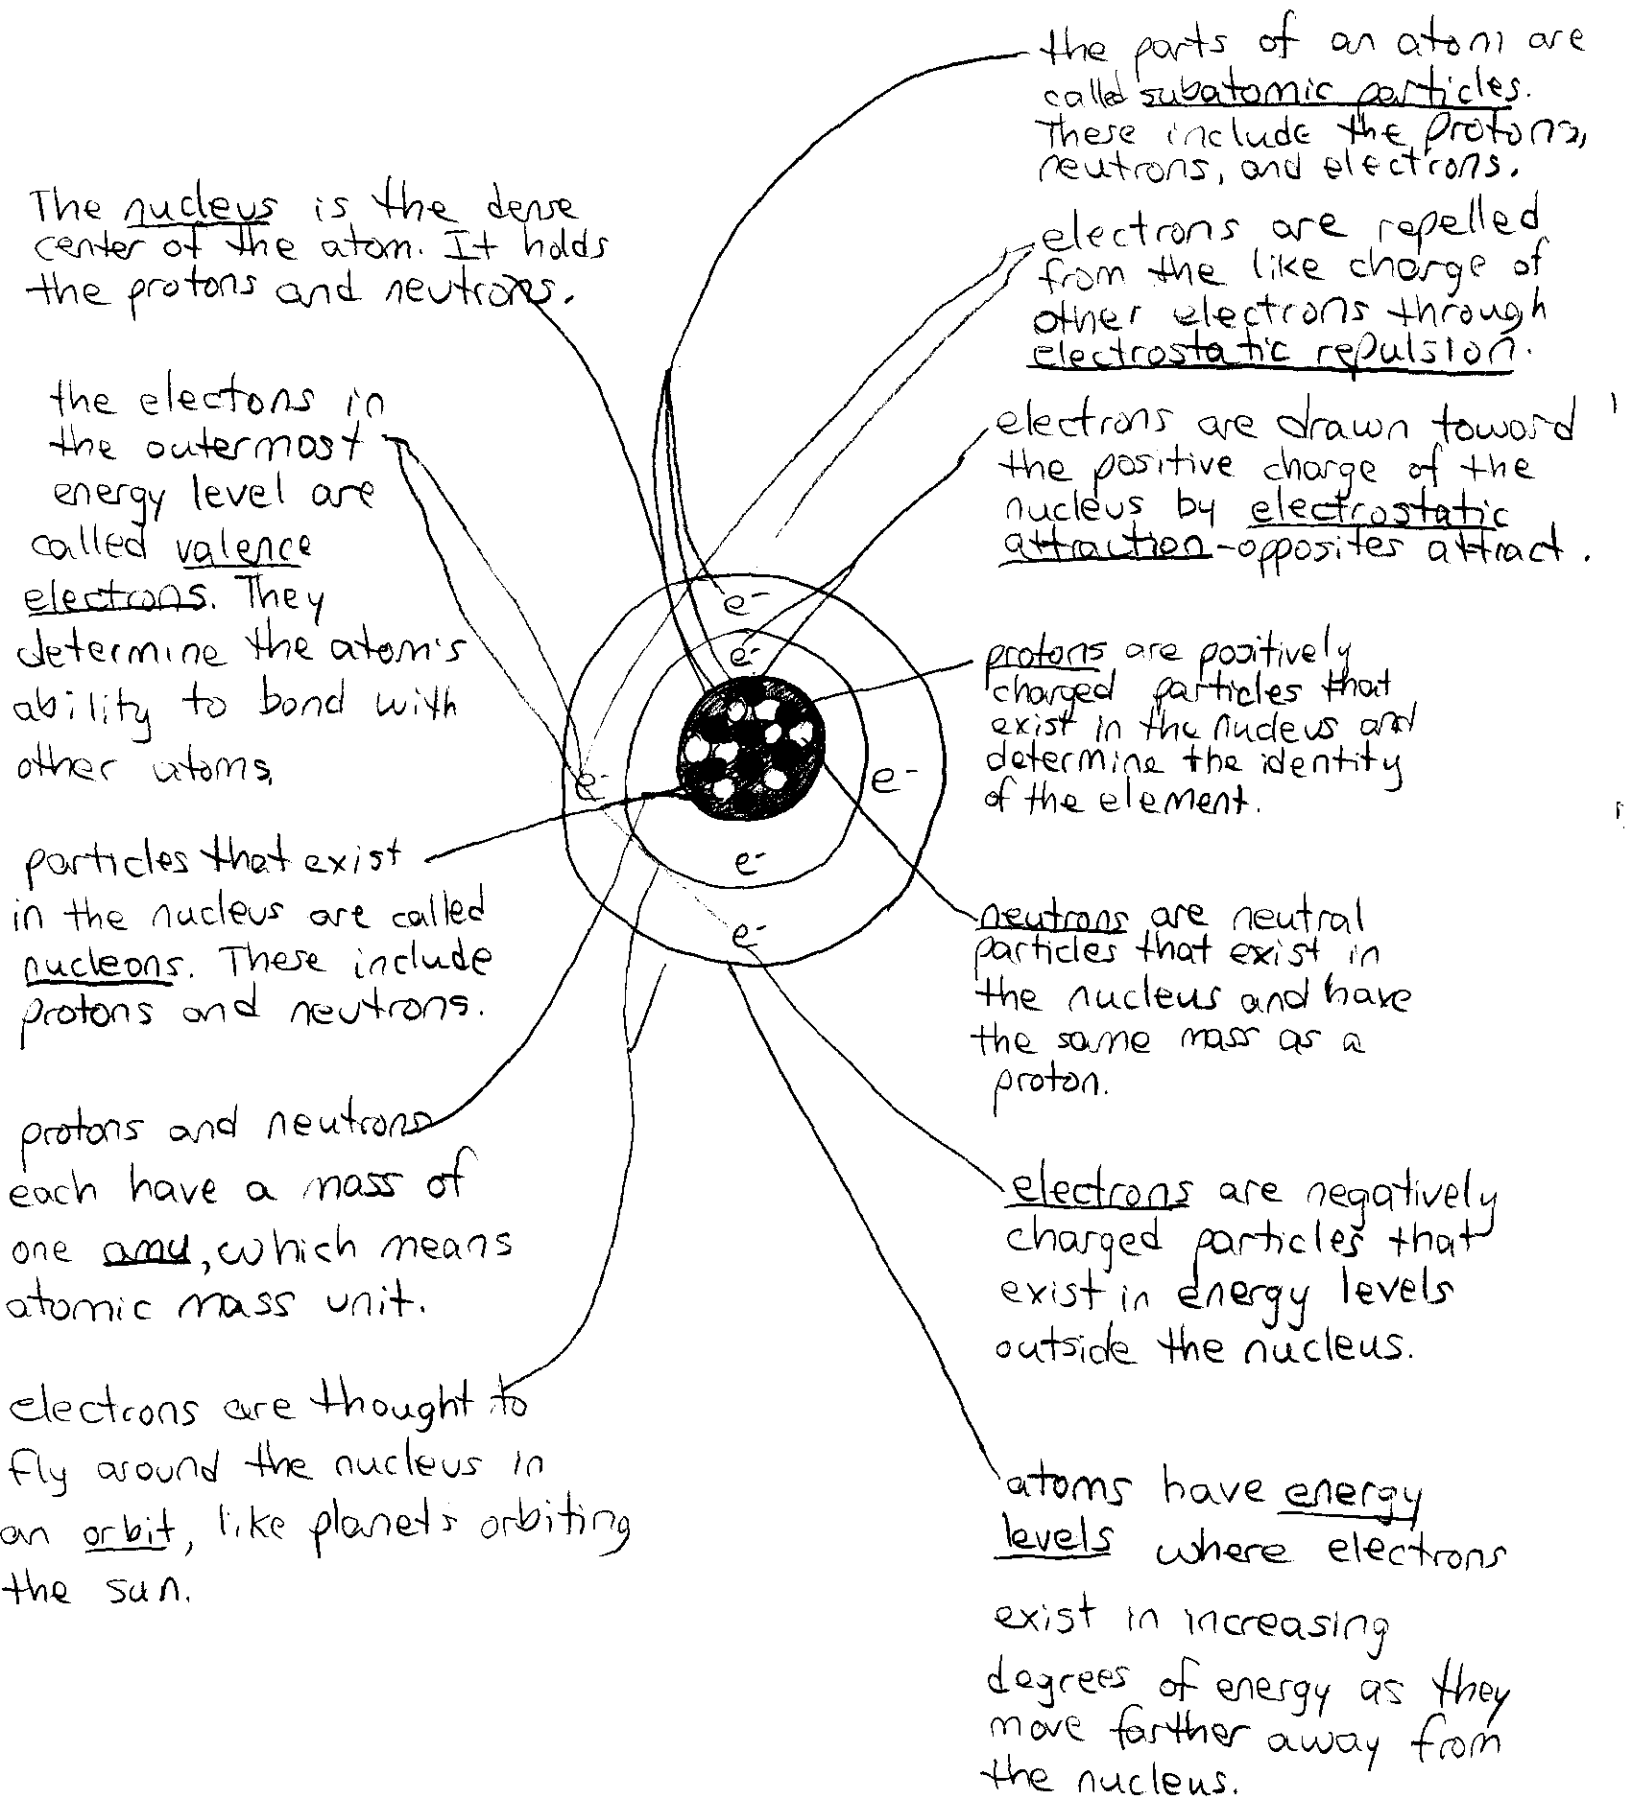 The nucleus is the dense
center of the atom. It holds
the protons and neutrons.
the electons in
the outermost
energy level are
called valence
electrons. They
determine the atom's
ability to bond with
other atoms.
particles that exist
in the nucleus are called
nucleons. These include
protons and neutrons.
protons and neutrons
each have a mass of
one amu, which means
atomic mass unit.
electrons are thought to
fly around the nucleus in
an orbit, like planets orbiting
the sun.
e-
e-
e-
e-
e-
e-
the parts of an atom are
called subatomic particles.
These include the protons,
neutrons, and electrons.
electrons are repelled
from the like charge of
other electrons through
electrostatic repulsion.
electrons are drawn toward
the positive charge of the
nucleus by electrostatic
attraction-opposites attract.
protons are positively
charged particles that
exist in the nucleus and
determine the identity
of the element.
neutrons are neutral
particles that exist in
the nucleus and have
the same mass as a
proton.
electrons are negatively
charged particles that
exist in energy levels
outside the nucleus.
atoms have energy
levels where electrons
exist in increasing
degrees of energy as they
move farther away from
the nucleus.